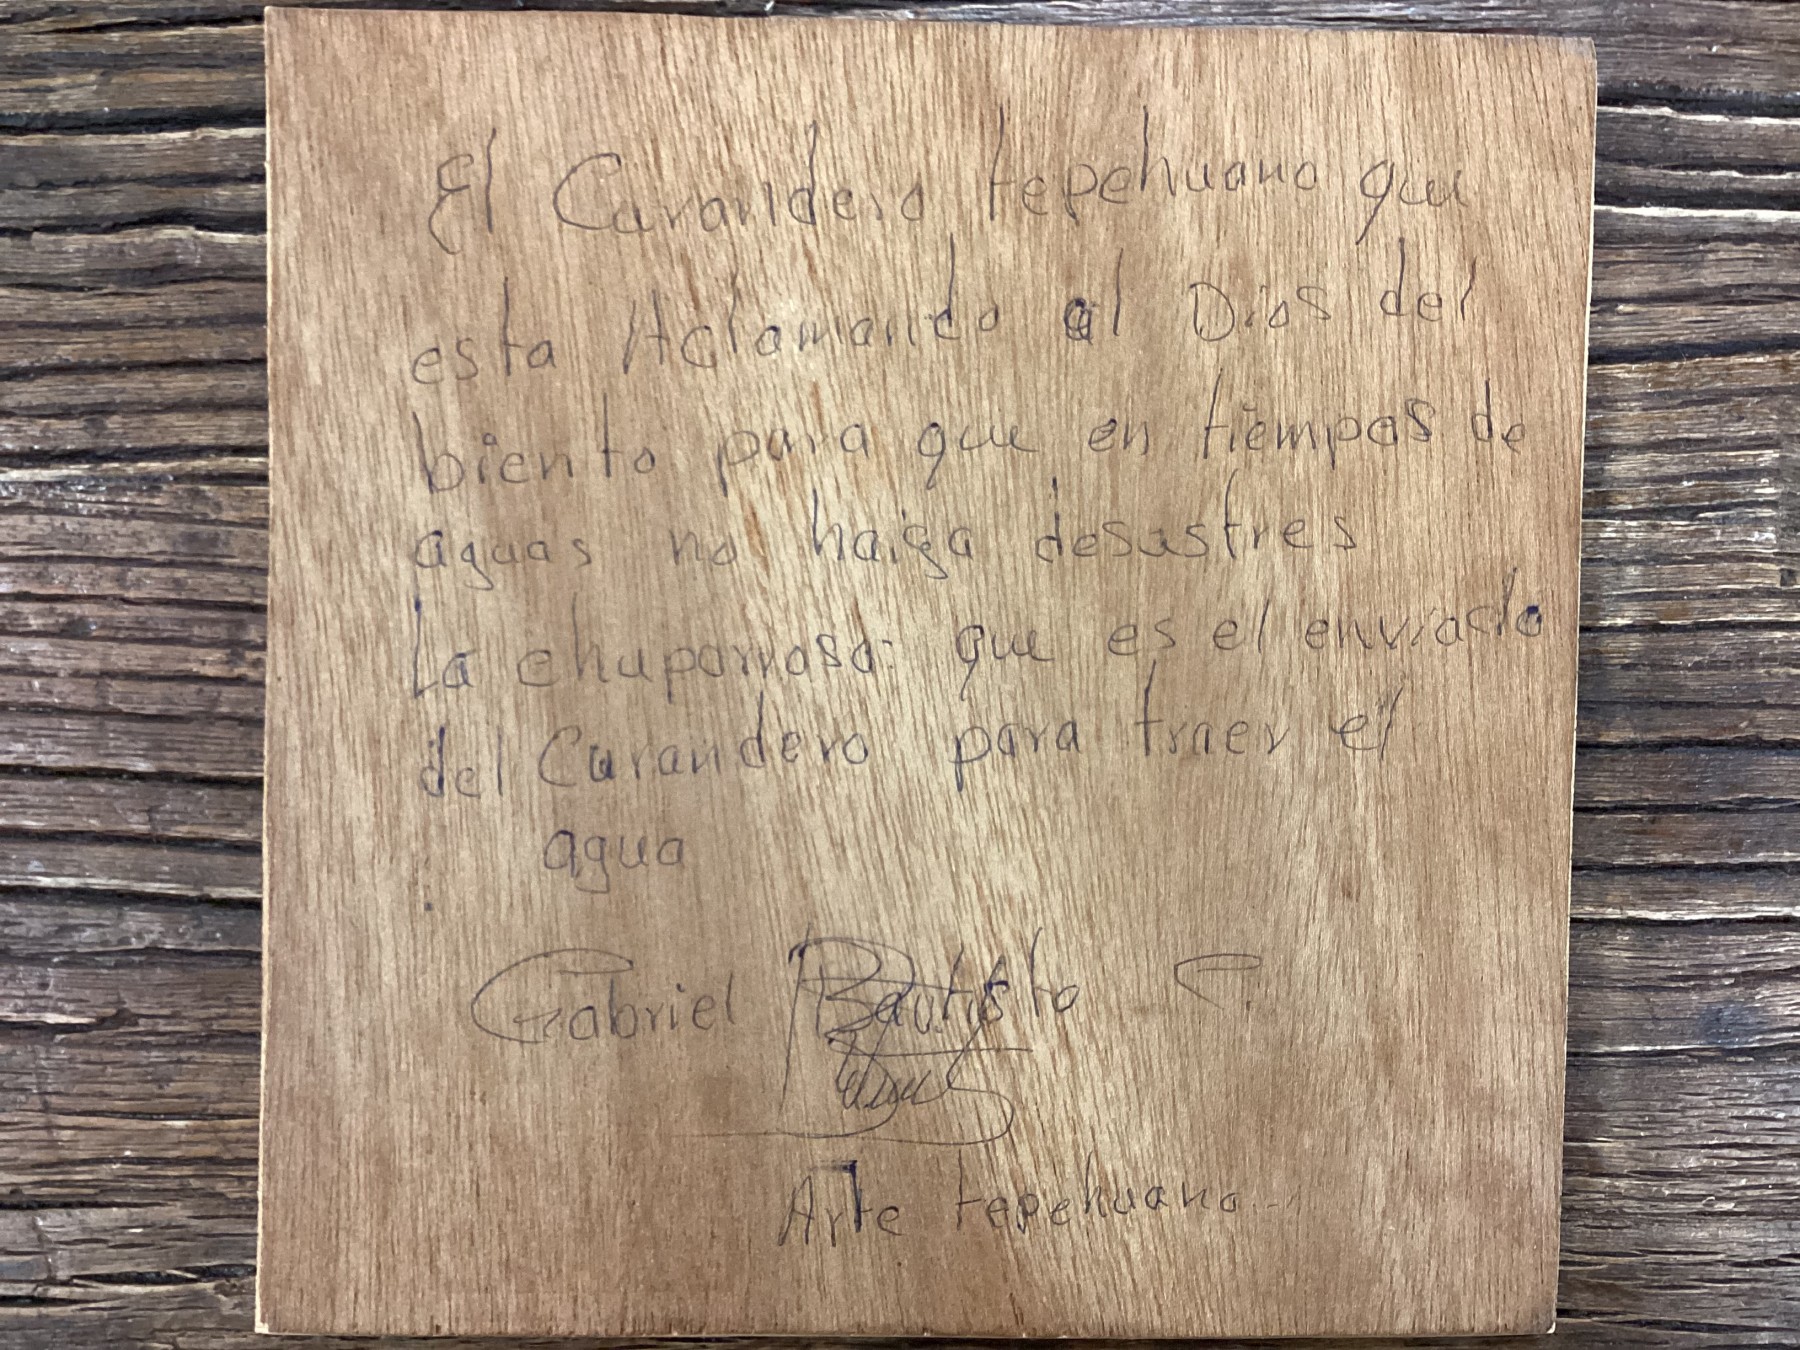 El Curandero tepehuano que
esta Aclamando al Dios del
biento para que en tiempos de
aguas no haiga desastres
La chuparrosa: que es el enviado
del Curandero para traer el
agua
Gabriel Bautista C.
Arte tepehuano..